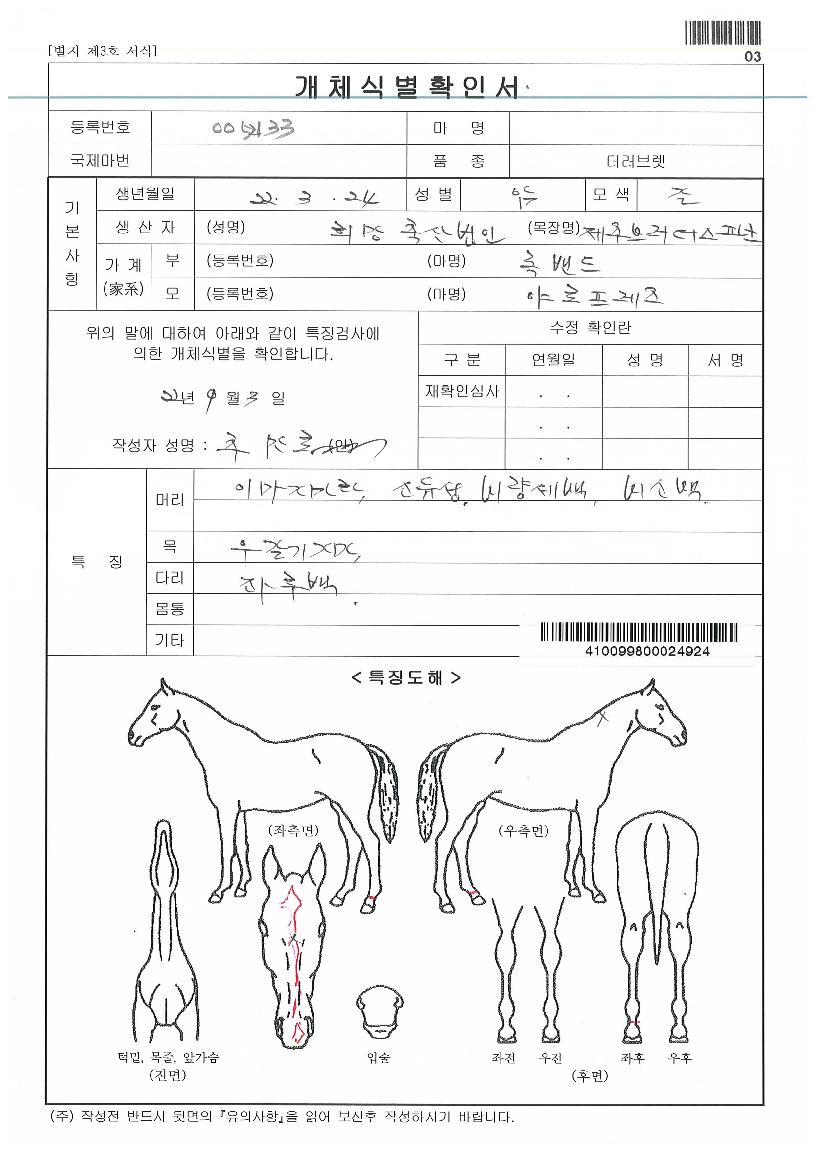 [별지 제3호 서식]
03
개체식별확인서
등록번호 마 명
국제마번 품 종 더러브렛
기본사항
생년월일 22. 3. 24 성 별 모 색
생 산 자 (성명) 축산법인 (목장명) 제주브리더스팜
가 계 (家系) 부 (등록번호) (마명) 록 밴드
모 (등록번호) (마명) 야 로 프 레 즈
위의 말에 대하여 아래와 같이 특징검사에
의한 개체식별을 확인합니다.
22년 9월 3일
작성자 성명 : (인)
수정 확인란
구 분 연월일 성 명 서 명
재확인심사 . .
. .
. .
특 징
머리
목
다리 좌후백
몸통
기타
410099800024924
< 특징도해 >
(좌측면) (우측면)
턱밑, 목줄, 앞가슴 입술 좌전 우전 좌후 우후
(전면) (후면)
(주) 작성전 반드시 뒷면의 『유의사항』을 읽어 보신후 작성하시기 바랍니다.